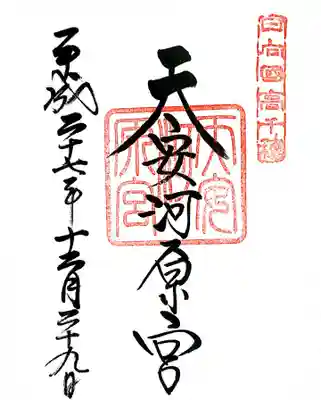 日向國高千穂
天安河原宮
天安河原宮
平成二十七年十二月二十九日